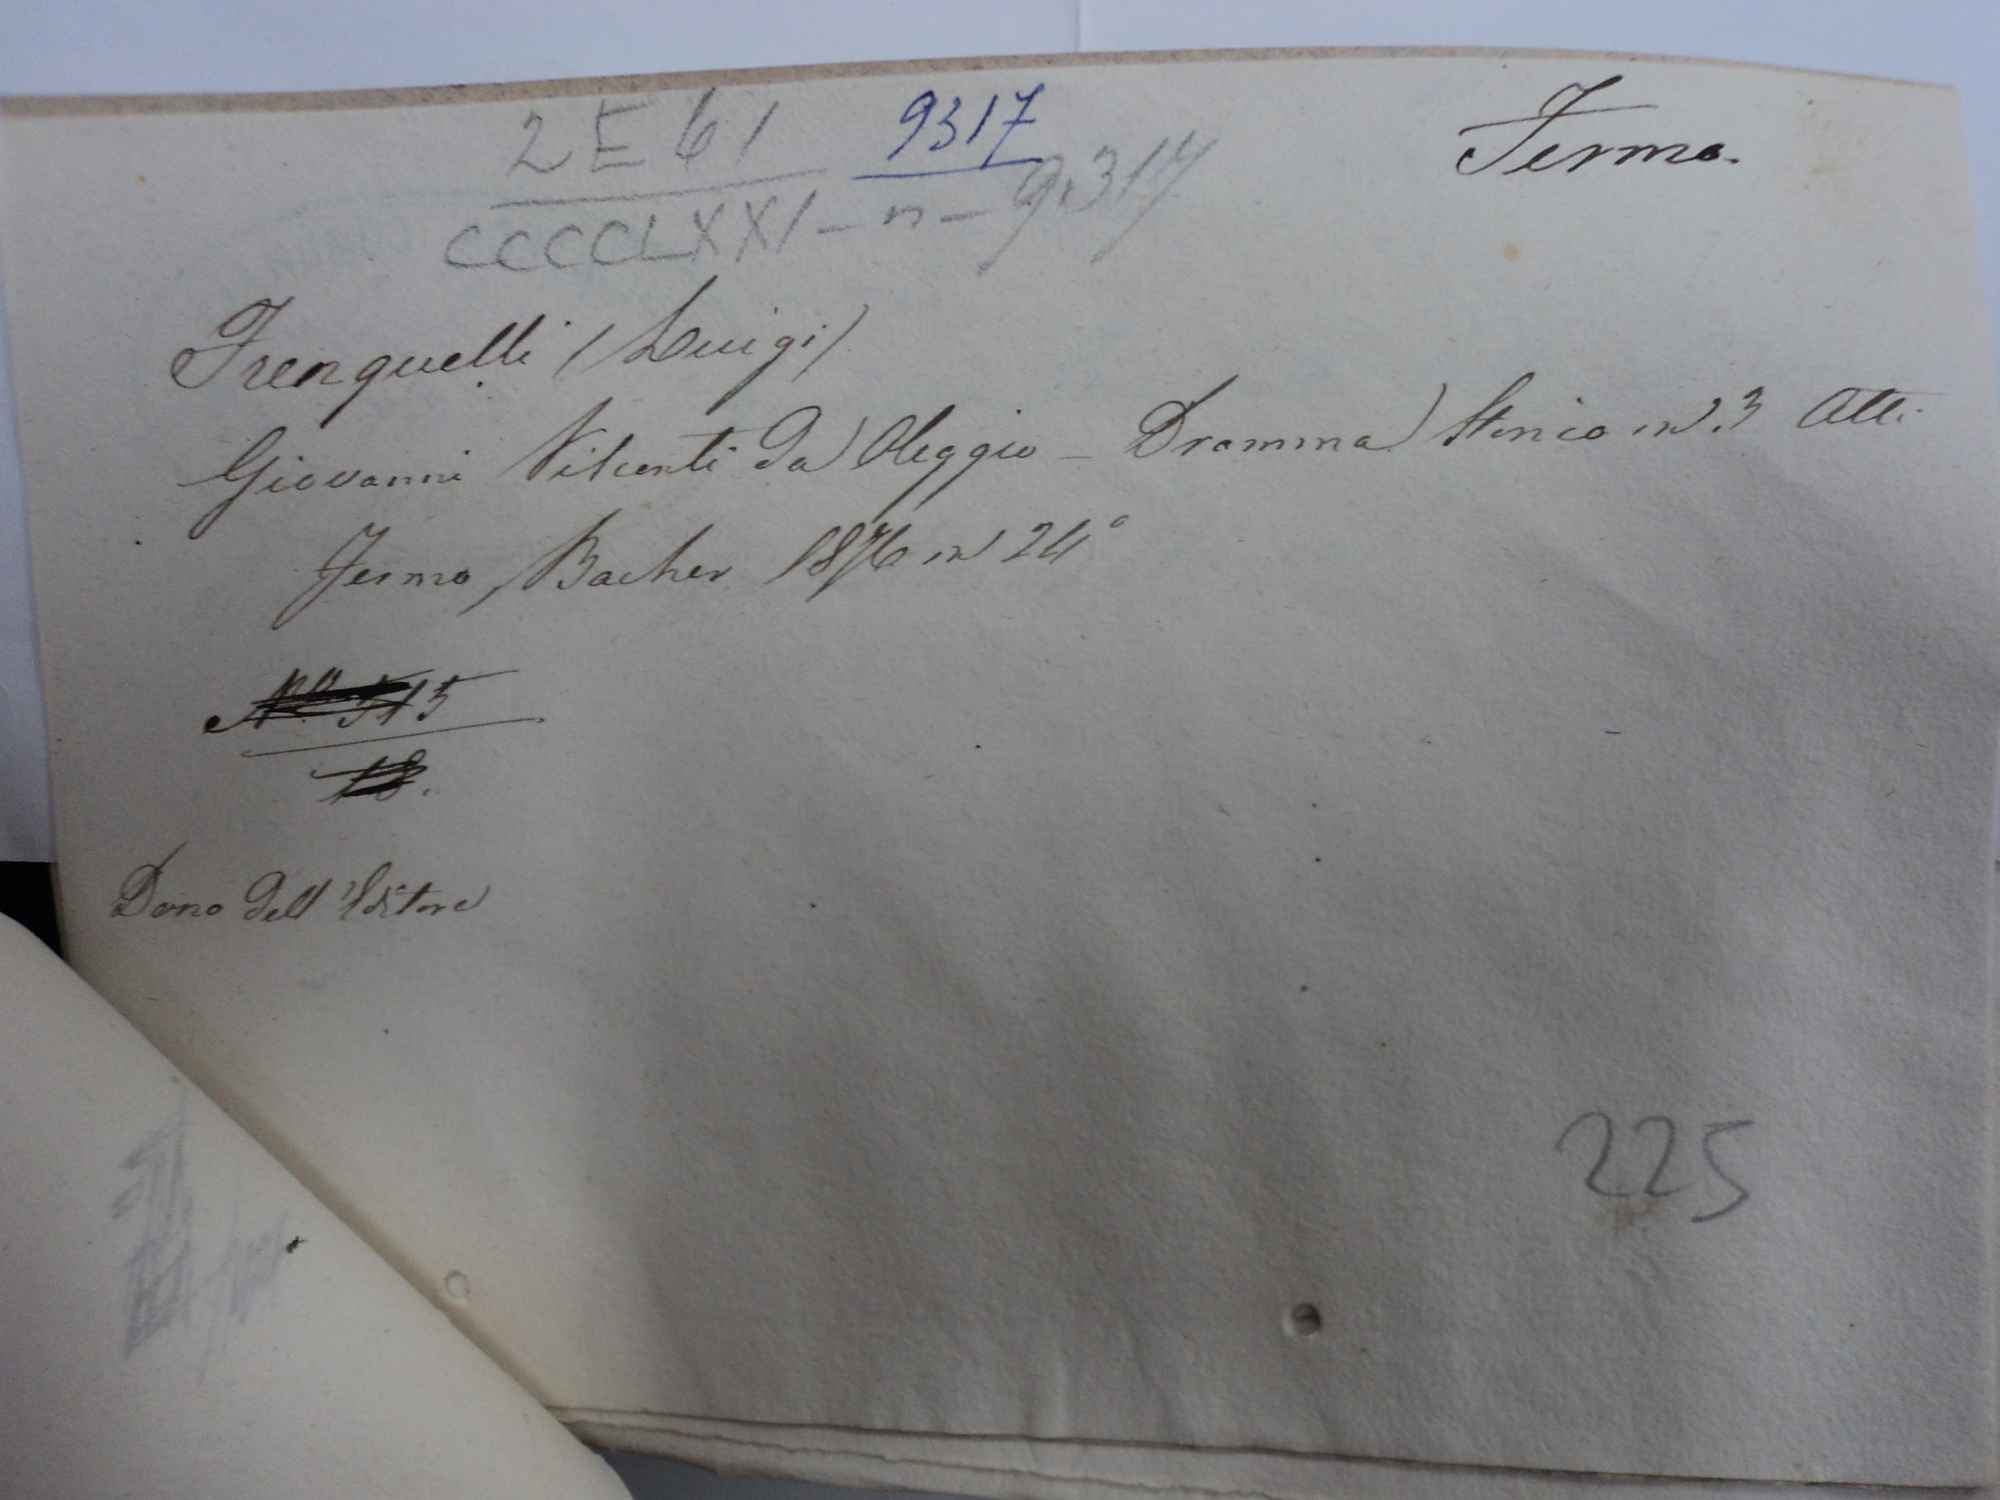 2 E 61 9317 Fermo.
CCCCLXXI - n - 9.317
Frenguelli (Luigi)
Giovanni Visconti da Oleggio - Dramma Storico in 3 Atti
Fermo, Bacher 1876 in 24°
N° 515
18.
Dono dell'Editore
225